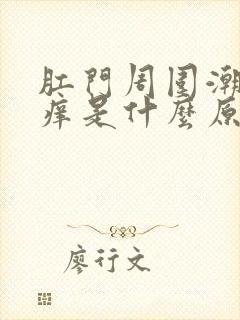 肛門周围潮
痒是什麼原
廖行文